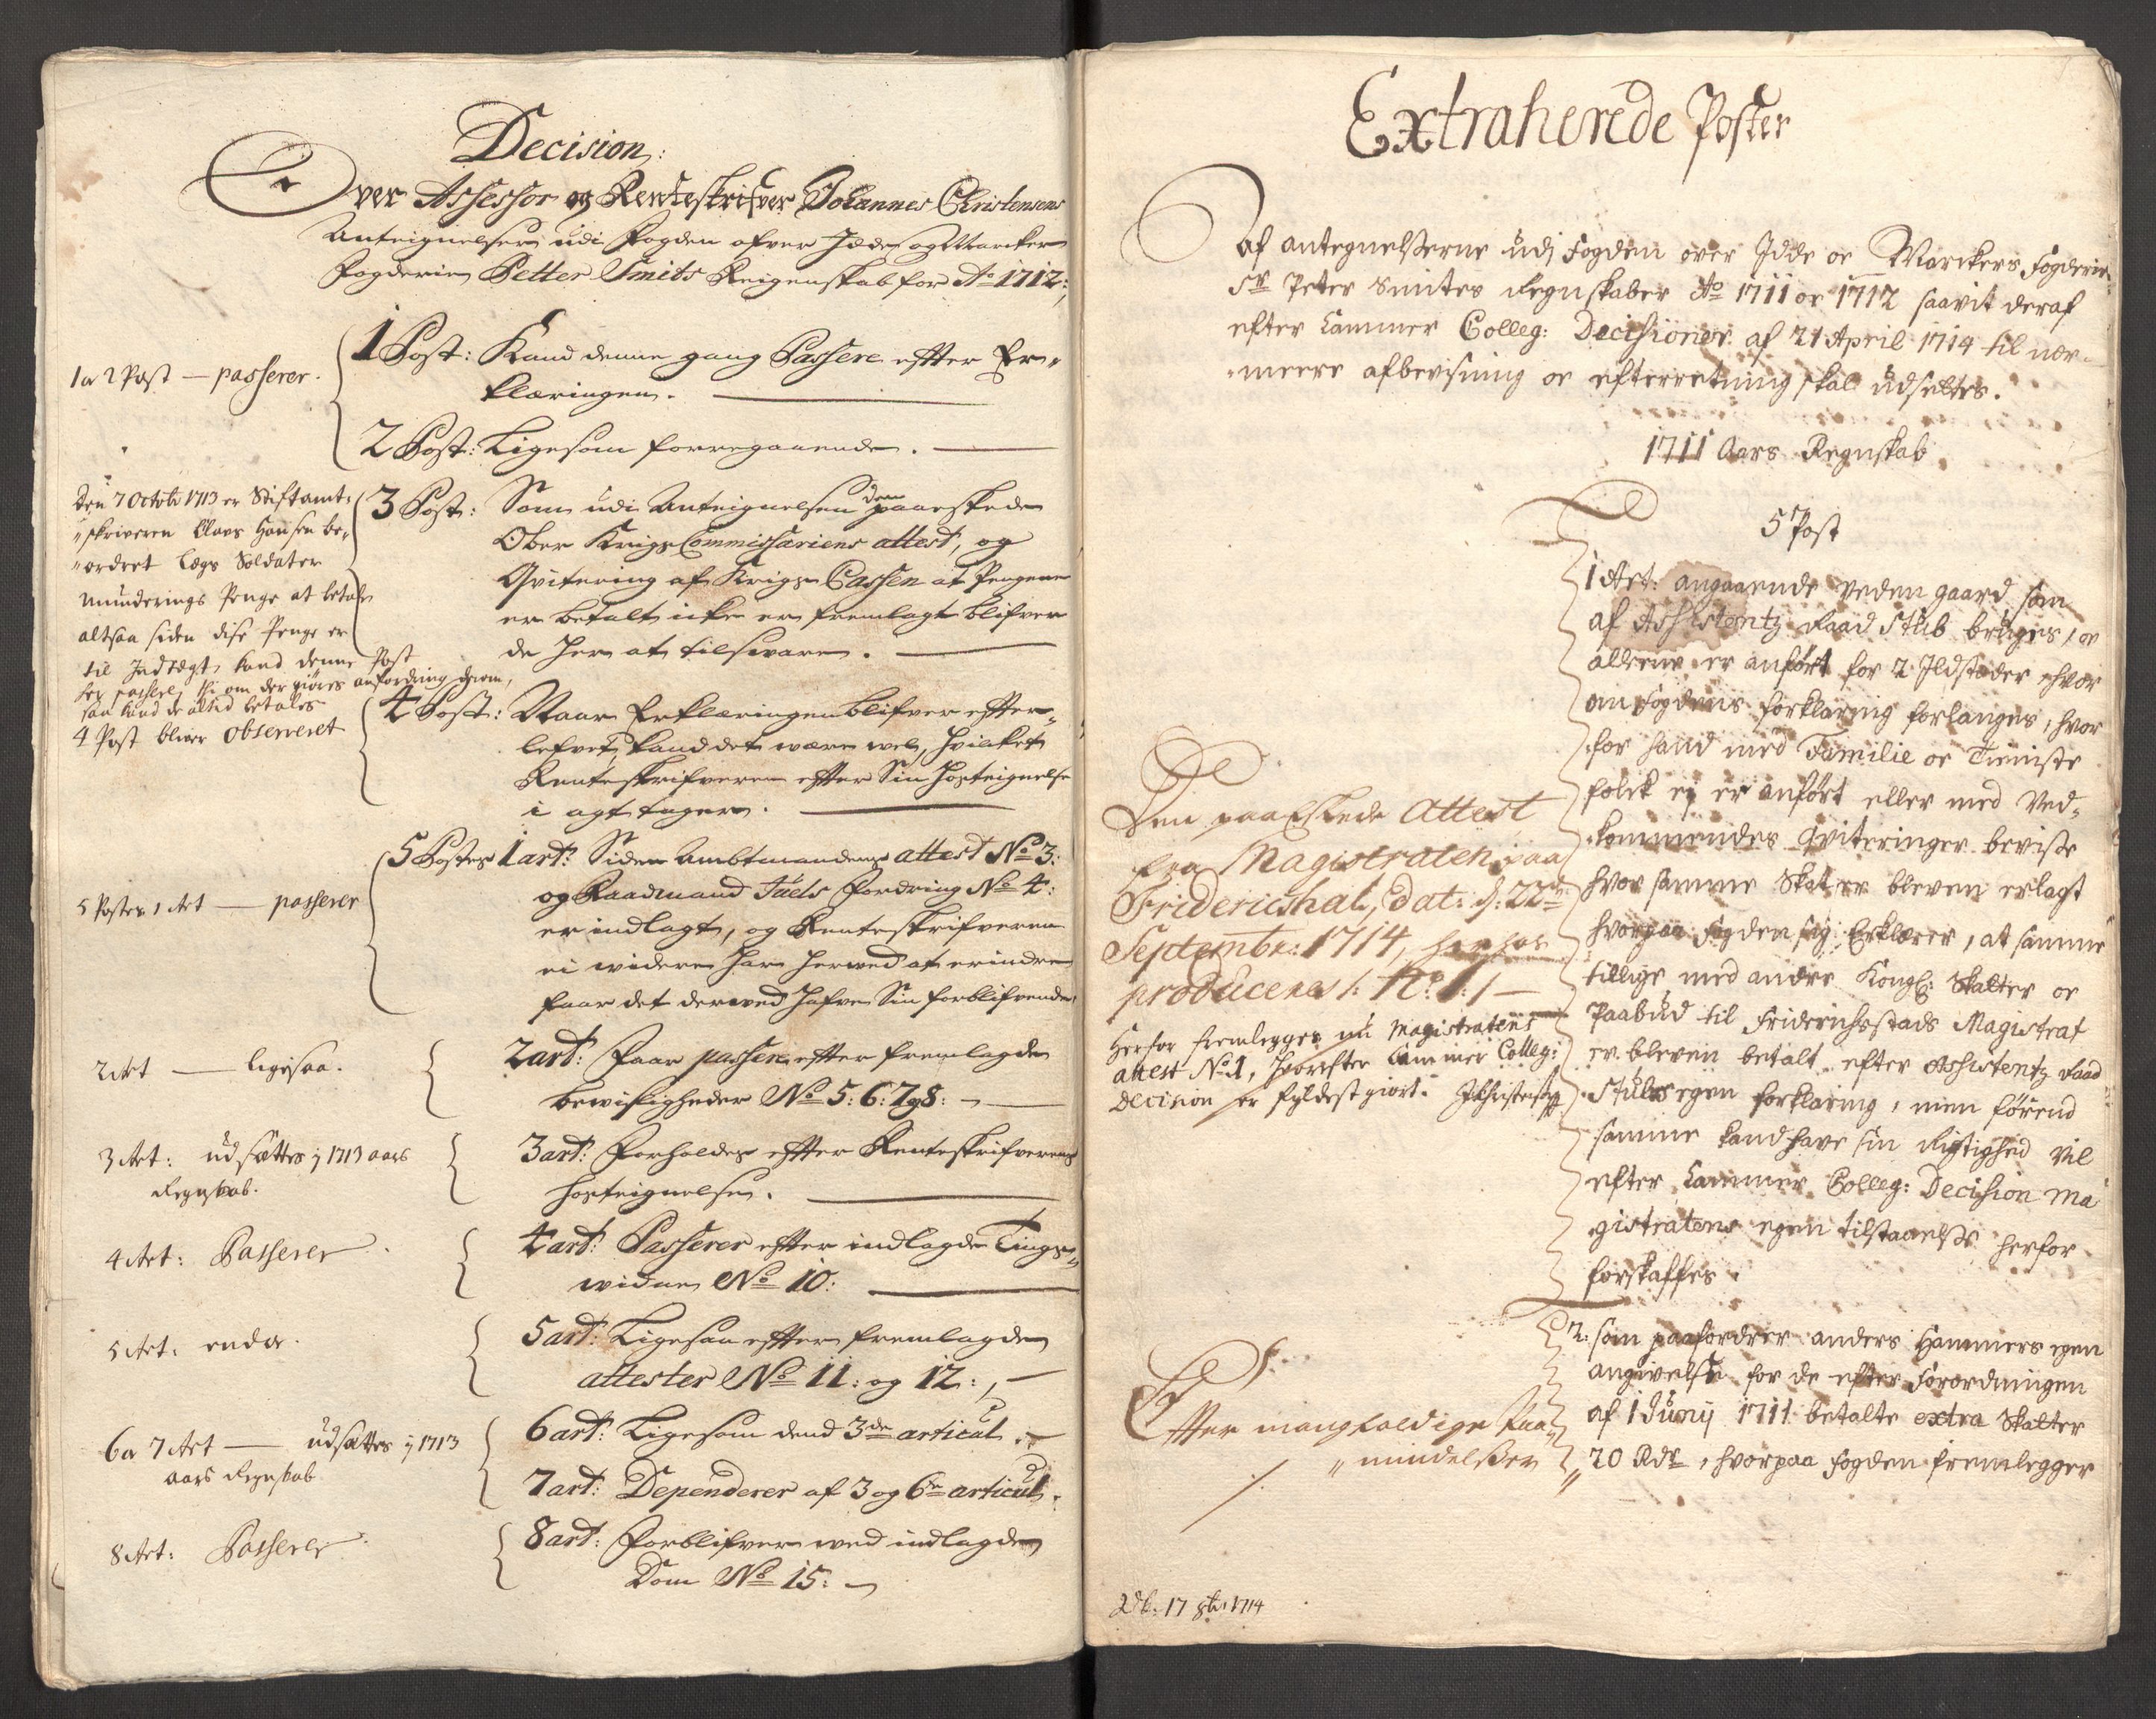 Decision:
Over Assessor og Renteskrifver Johannes Christensens
Anteignelser udi Fogden ofver Idde og Marcker
Fogderie Petter Smits Reigenskab for Ao 1712:
1 a 2 Post — passerer.
1 Post: Kand denne gang Passere effter Er-
klæringen.
2 Post: Ligesom forregaaende.
Den 7 Octobr 1713 er Stiftamt-
skriveren Claus Hansen be-
ordret Legs Soldater
Munderings Penge at betale
altsaa siden disse Penge er
til Indtægt, kand denne Post
her passere, thi om der giøres anfordring derom,
saa kand de altid betales
3 Post: Som udi Anteignelsen den paaeskede
Ober Krigs Commissariens attest, og
Qvitering af Krigs Cassen at Pengene
er betalt icke er fremlagt blifver
de her at tilsvare.
4 Post bliver observeret
4 Post: Naar Erklæringen blifver effter-
lefvet, kand det være vel, hvilcket
Renteskrifveren effter Sin Hosteignelse
i agt tager.
5 Postes 1 Art — passerer
5 Postes 1 art: Siden Ambtmandens attest No 3:
og Raadmand Juels fordring No 4:
er indlagt, og Renteskrifveren
ei widere har herved at erindre
faar det derved hafve Sin forblifvende.
2 Art — ligesaa.
2 art: Faar passere effter fremlagde
bevisligheder No 5: 6: 7 og 8: —
3 Art: udsættes i 1713 aars
Regnskab.
3 art: Forholdes effter Renteskrifverens
hosteignelse.
4 Art: Passerer
4 art: Passerer effter indlagde Tings-
widne No 10:
5 Art: endu.
5 art: Ligesaa effter fremlagde
attester No 11: og 12:, —
6 a 7 Art — udsættes i 1713
aars Regnskab
6 art: Ligesom dend 3de articul. —
7 art: Dependerer af 3 og 6te articul.
8 Art: Passerer
8 art: Forblifver ved indlagde
Dom No 15: —
Extraherede Poster
Af antegnelserne udj Fogden over Idde oc Marckers Fogderie
Sr Peter Smites Regnskaber Ao 1711 oc 1712 saavit deraf
efter Cammer Colleg: Decisioner af 21 April 1714 til nær-
meere afbevisning oc efterretning skal udsettes.
1711 Aars Regnskab
5 Post
1 Art: angaaende Veden gaard som
af Assistentz Raad Stub bruges, oc
alleene er anført for 2 Ildsteder, hvor
om Fogdens forklaring forlanges, hvor
for hand med Familie oc Tieniste
folck ej er anført eller med Ved-
kommendes Qviteringer beviise
hvor samme Skatter bleven erlagt
hvorpaa Fogden sig Erklærer, at samme
tillige med andre Kongl: Skatter oc
Paabud til Friderichsstads Magistrat
er bleven betalt efter Assistentz Raad
Stubs egen forklaring, men førend
samme kand have sin Rigtighed vil
efter Cammer Colleg: Decision Ma
gistratens egen tilstaaelse herfor
forskaffes.
Den paaEskede Attest
fra Magistraten paa
Fridericshal, dat: d: 22de
Septembr: 1714, her hos
produceres /: No: 1: / —
Herfor fremlegges nu Magistratens
attest No 1, hvorefter Cammer Colleg:
Decision er fyldest giort. JChristensen
2: som paafordrer Anders Hammers egen
angivelse for de efter Forordningen
af 1 Junij 1711 betalte extra Skatter
20 Rdr, hvorpaa Fogden fremlegger
Efter mangfoldige Paa
mindelser
17 8br 1714